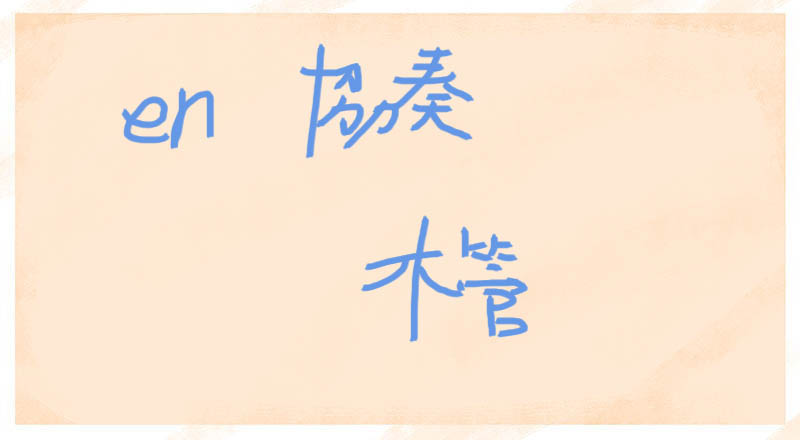 en 協奏
木管